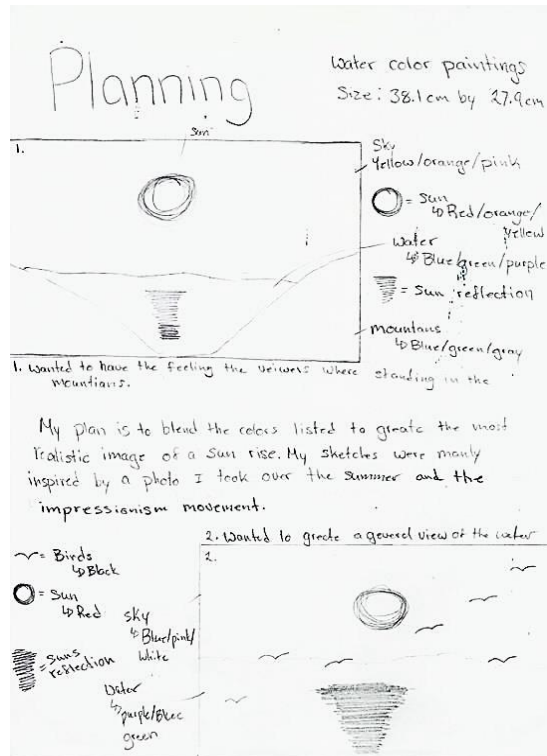 Planning
Water color paintings
Size: 38.1cm by 27.9cm
1.
Sun
Sky
Yellow/orange/pink
= Sun
↳ Red/orange/
Yellow
Water
↳ Blue/green/purple
= Sun reflection
mountans
↳ Blue/green/gray
1. Wanted to have the feeling the veiwers where standing in the
mountians.
My plan is to blend the colors listed to greate the most
realistic image of a sun rise. My sketches were manly
inspired by a photo I took over the summer and the
impressionism movement.
2. Wanted to greate a general view of the water
2.
= Birds
↳ Black
= Sun
↳ Red
= Suns
reflection
Sky
↳ Blue/pink/
White
Water
↳ purple/Blue
green